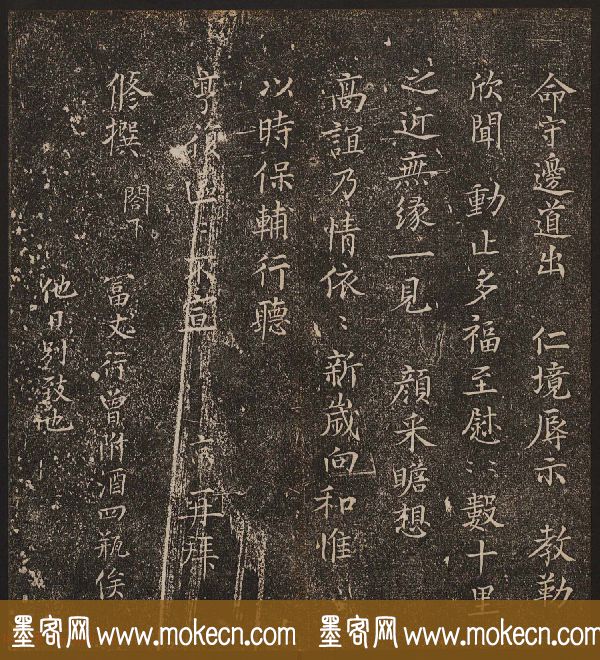 命守邊道出 仁境辱示 教勤
欣聞 動止多福至慰〻數十里
之近無緣一見 顏采瞻想
高誼乃情依〻新歲向和惟
以時保輔行聽
不宣 再拜
修撰 閤下 冨丈行曾附酒四瓶俟
他日別致也
墨客网 www.mokecn.com 墨客网 www.mokecn.com